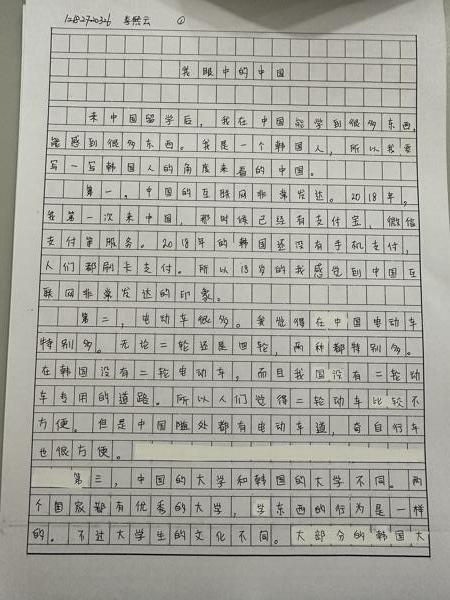 李熙云 ①
我眼中的中国
来中国留学后，我在中国能学到很多东西，
能感到很多东西。我是一个韩国人，所以我要
写一写韩国人的角度来看的中国。
第一，中国的互联网非常发达。2018年，
我第一次来中国，那时候已经有支付宝，微信
支付等服务。2018年的韩国还没有手机支付，
人们都刷卡支付。所以18岁的我感觉到中国互
联网非常发达的印象。
第二，电动车很多。我觉得在中国电动车
特别多。无论二轮还是四轮，两种都特别多。
在韩国没有二轮电动车，而且我国没有二轮动
车专用的道路。所以人们觉得二轮动车比较不
方便。但是中国随处都有电动车道，奇自行车
也很方便。
第三，中国的大学和韩国的大学不同。两
个国家都有优秀的大学，学东西的行为是一样
的。不过大学生的文化不同。大部分的韩国大